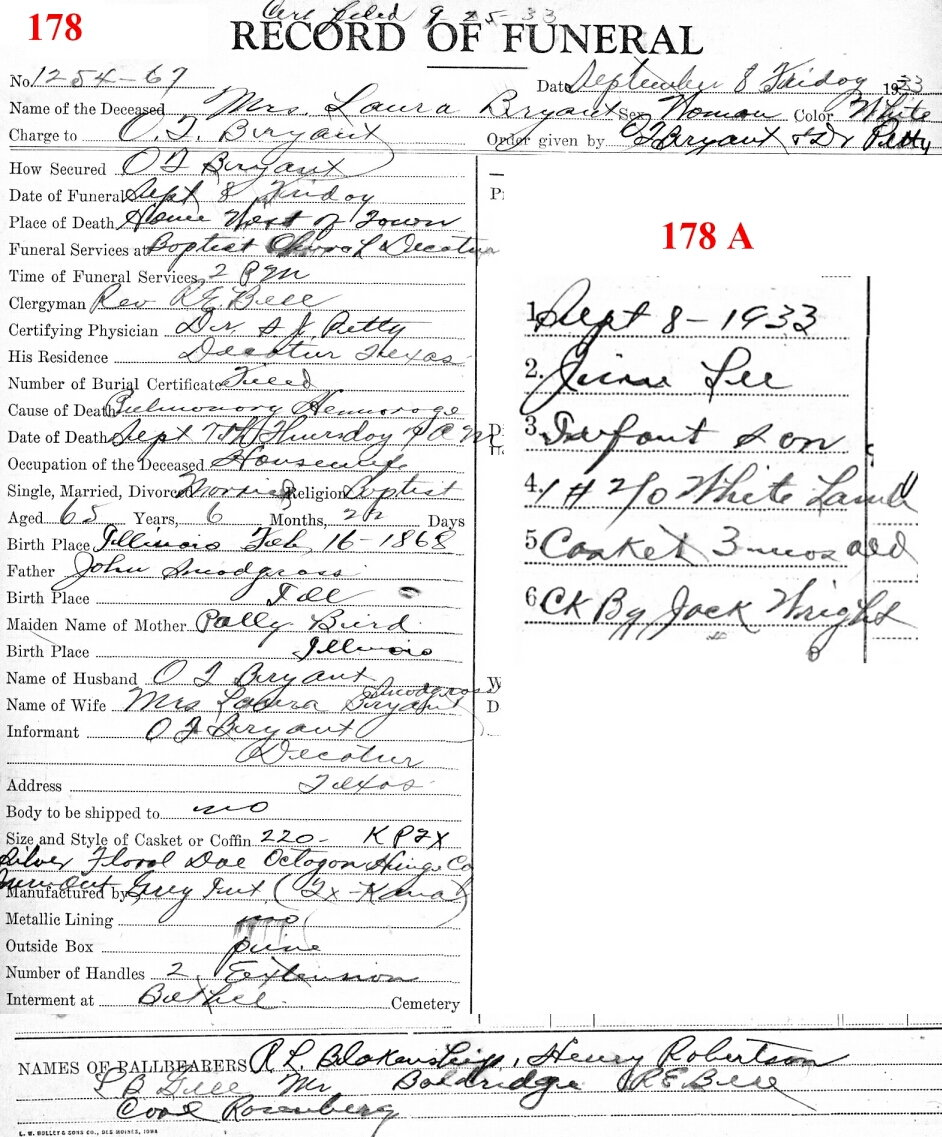 178
Cert Filed 9-25-33
RECORD OF FUNERAL
No. 1254-67 Date September 8 Friday 1933
Name of the Deceased Mrs. Laura Bryant Sex Woman Color White
Charge to O. T. Bryant Order given by O T Bryant & Dr Petty
How Secured O T Bryant
Date of Funeral Sept 8 Friday
Place of Death Home West of Town
Funeral Services at Baptist Church Decatur
Time of Funeral Services 2 P M
Clergyman Rev R.E. Bell
Certifying Physician Dr S J. Petty
His Residence Decatur Texas
Number of Burial Certificate Filed
Cause of Death Pulmonary Hemoroge
Date of Death Sept 7th Thursday A M
Occupation of the Deceased Housewife
Single, Married, Divorced Married Religion Baptist
Aged 65 Years, 6 Months, 22 Days
Birth Place Illinois Feb, 16-1868
Father John Snodgrass
Birth Place Ill
Maiden Name of Mother Polly Bird
Birth Place Illinois
Name of Husband O T Bryant
Snodgrass
Name of Wife Mrs Laura Bryant
Informant O T Bryant
Decatur
Address Texas
Body to be shipped to no
Size and Style of Casket or Coffin 220- K P 2X
Silver Floral Doe Octogon Hinge Co
Manufactured by Grey Int
Metallic Lining no
Outside Box pine
Number of Handles 2 Extension
Interment at Bethel Cemetery
178 A
1. Sept 8-1933
2. Jimmie Lee
3. Infant son
4. 1 # 2/0 White Lamb
5 Casket 3 mos old
6 Ck By Jack Wright
NAMES OF PALLBEARERS R L Blakenship, Henry Robertson
L B Gill Mr Boldridge R E Bell
Rosenberg
L. W. HOLLEY & SONS CO., DES MOINES, IOWA